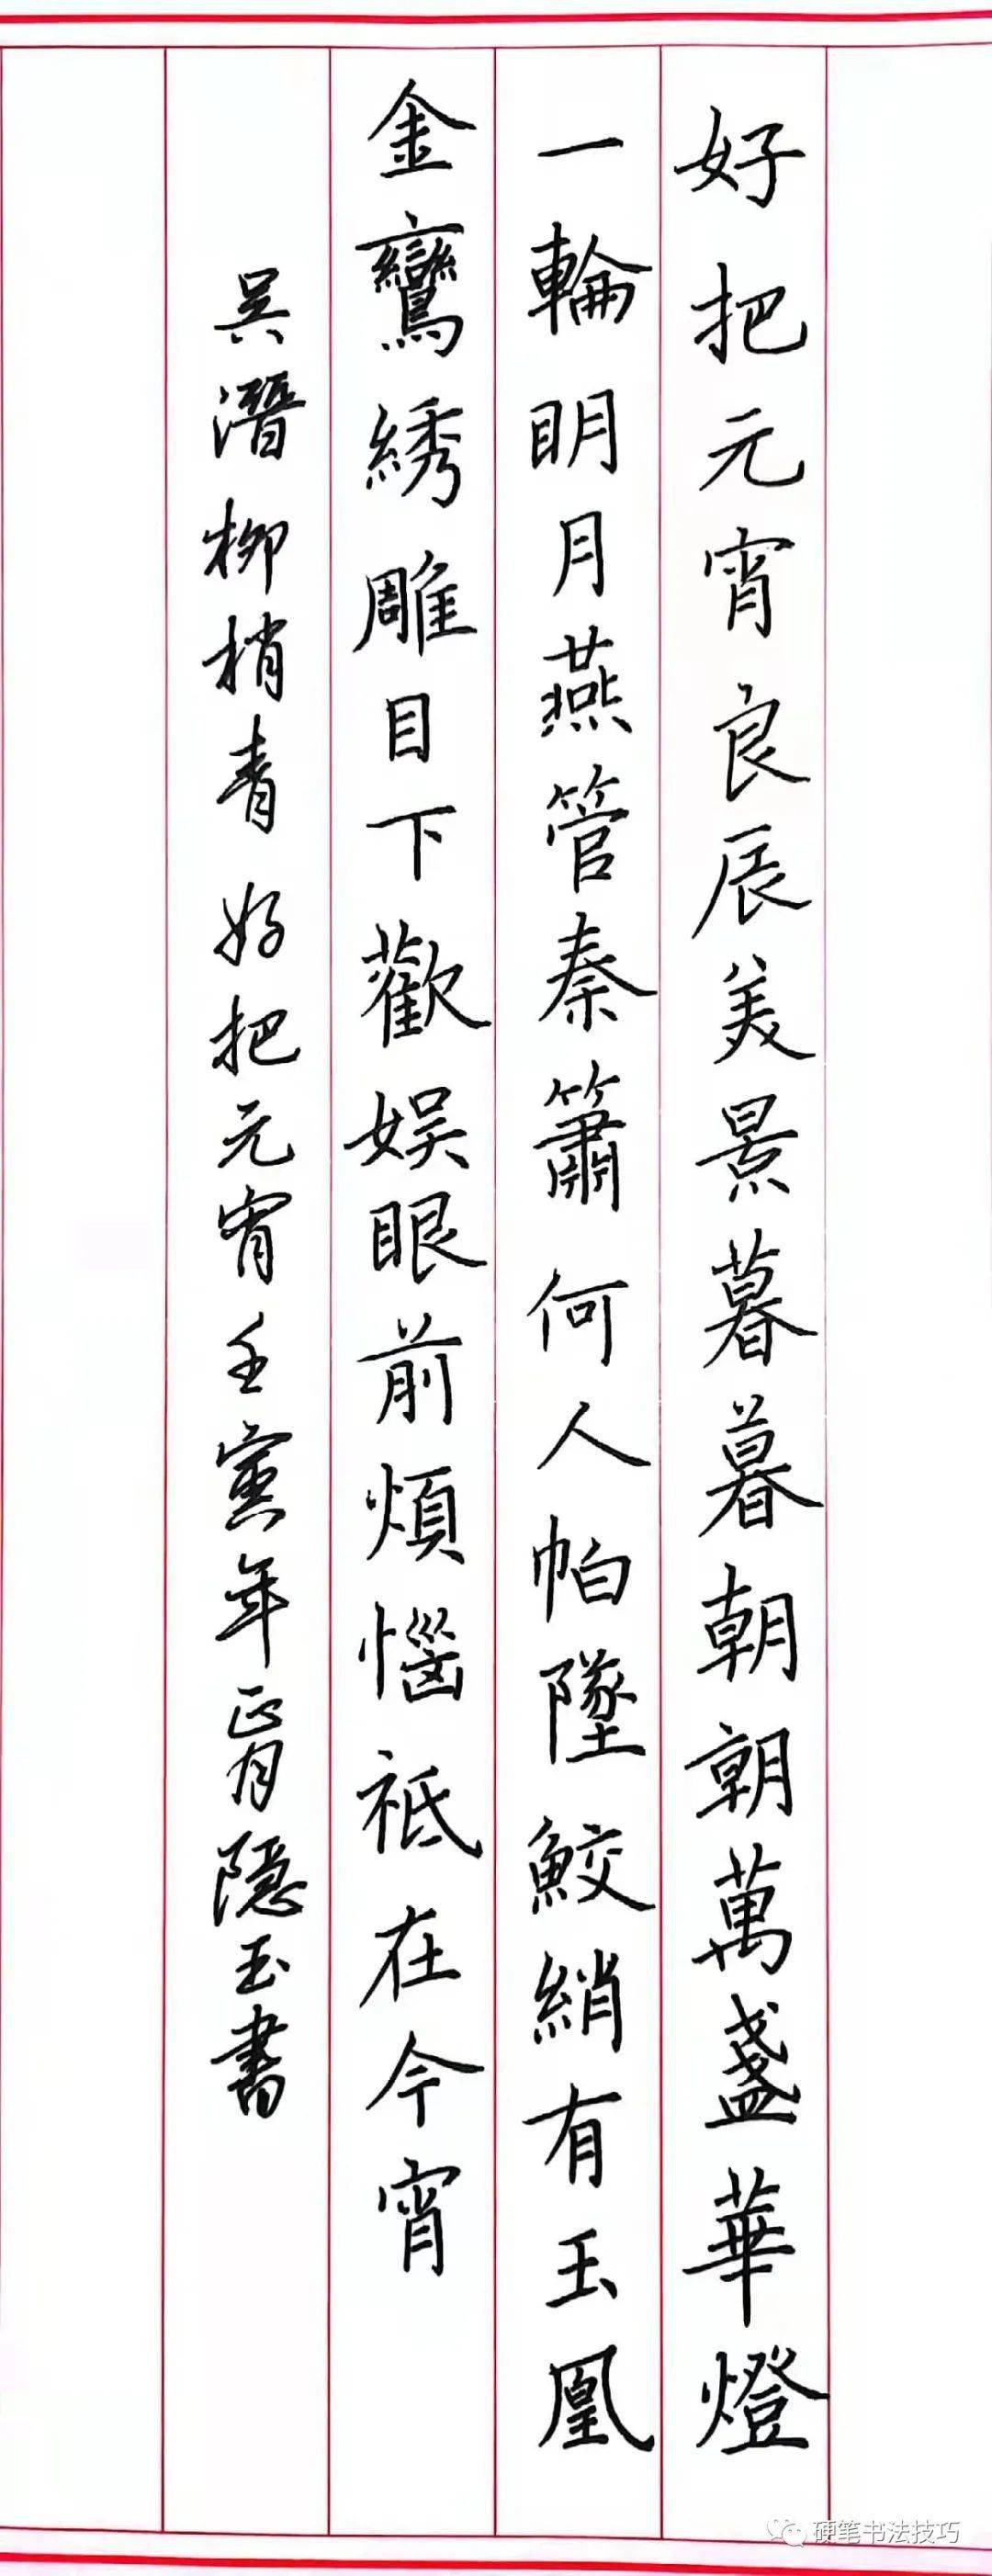 好把元宵良辰美景暮暮朝朝萬盞華燈
一輪明月燕管秦簫何人帕墜鮫綃有玉凰
金鸞綉雕目下歡娱眼前煩惱祗在今宵
吴潛柳梢青好把元宵壬寅年正月隱玉書
硬笔书法技巧